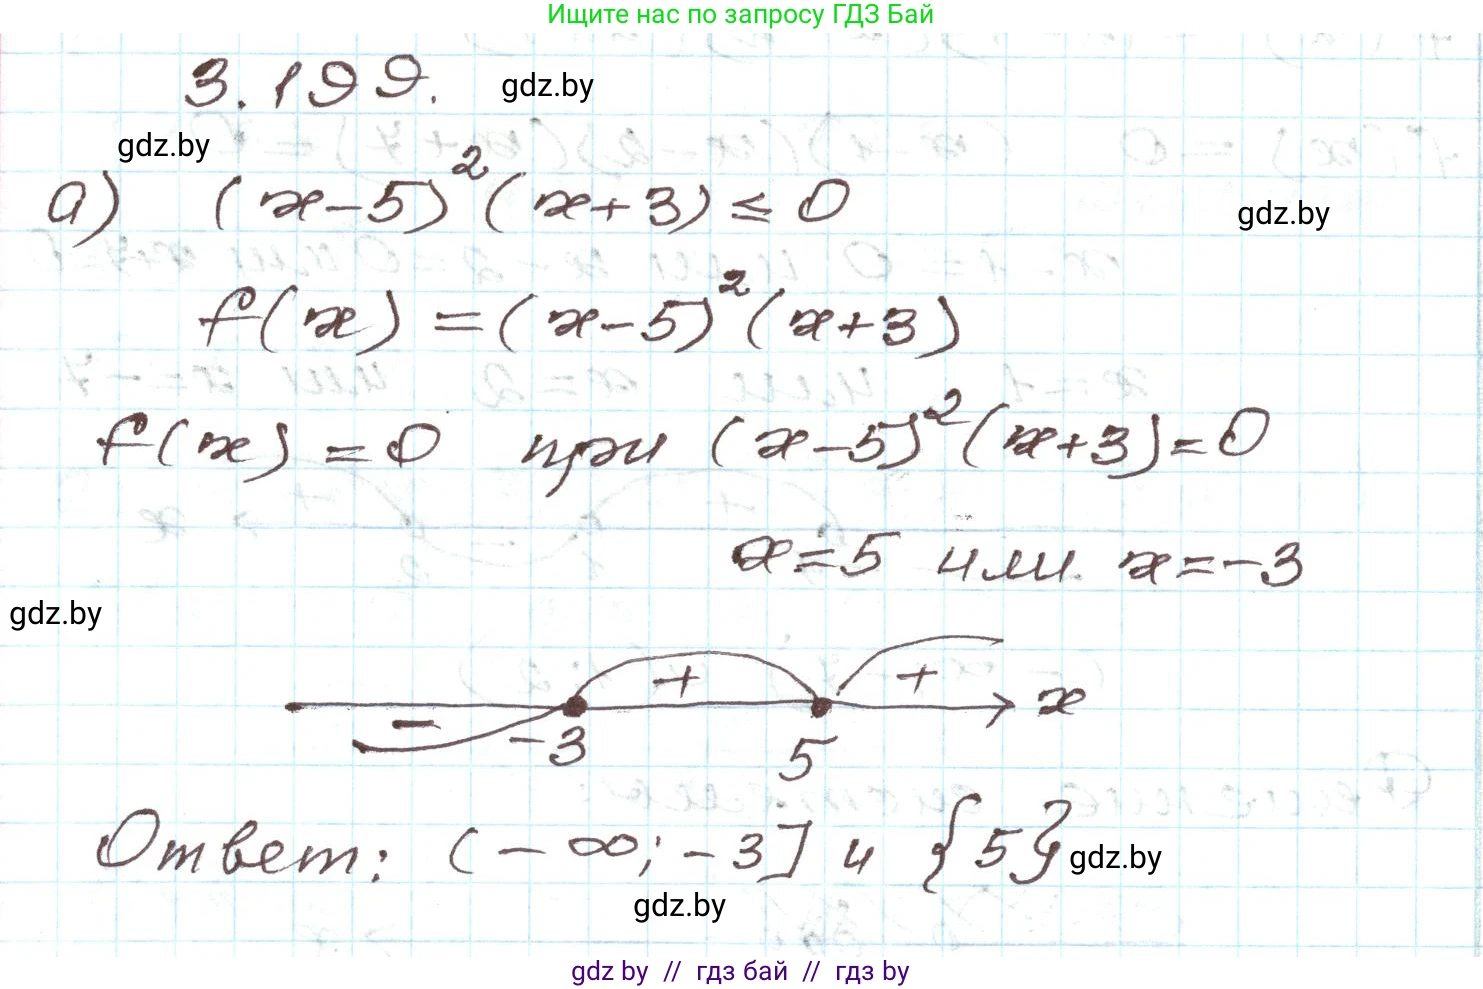 Ищите нас по запросу ГДЗ Бай
3.199. gdz.by
gdz.by
а) (x-5)²(x+3) ≤ 0
gdz.by
f(x) = (x-5)²(x+3)
f(x) = 0 при (x-5)²(x+3) = 0
x = 5 или x = -3
gdz.by
- + + x
-3 5
Ответ: (-∞; -3] и {5}
gdz.by
gdz.by
gdz by // гдз бай // гдз by